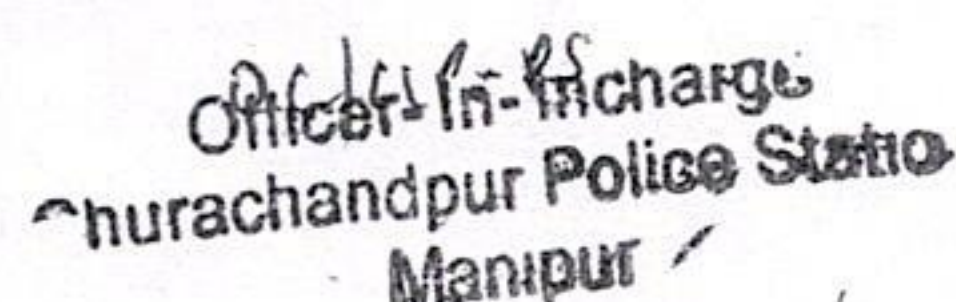 Officer-In-Incharge
Churachandpur Police Statio
Manipur